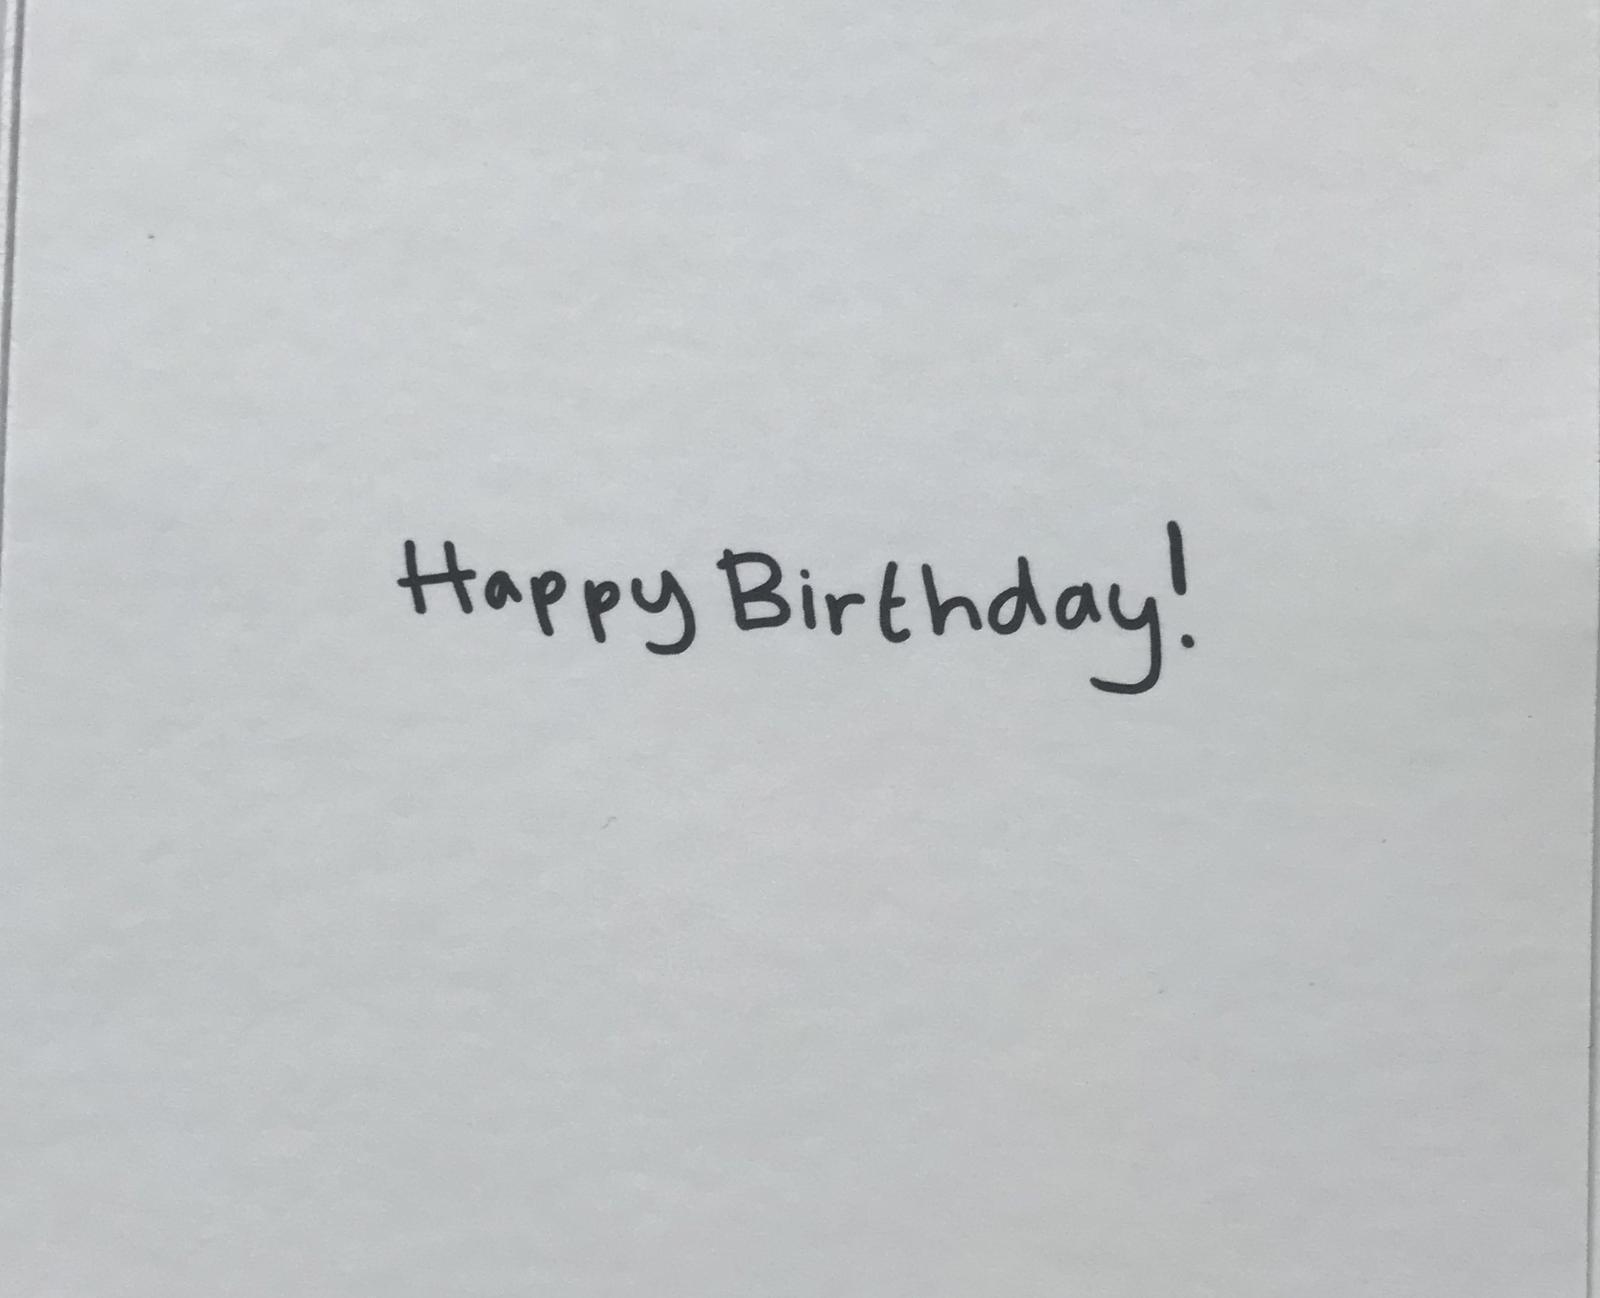 Happy Birthday!